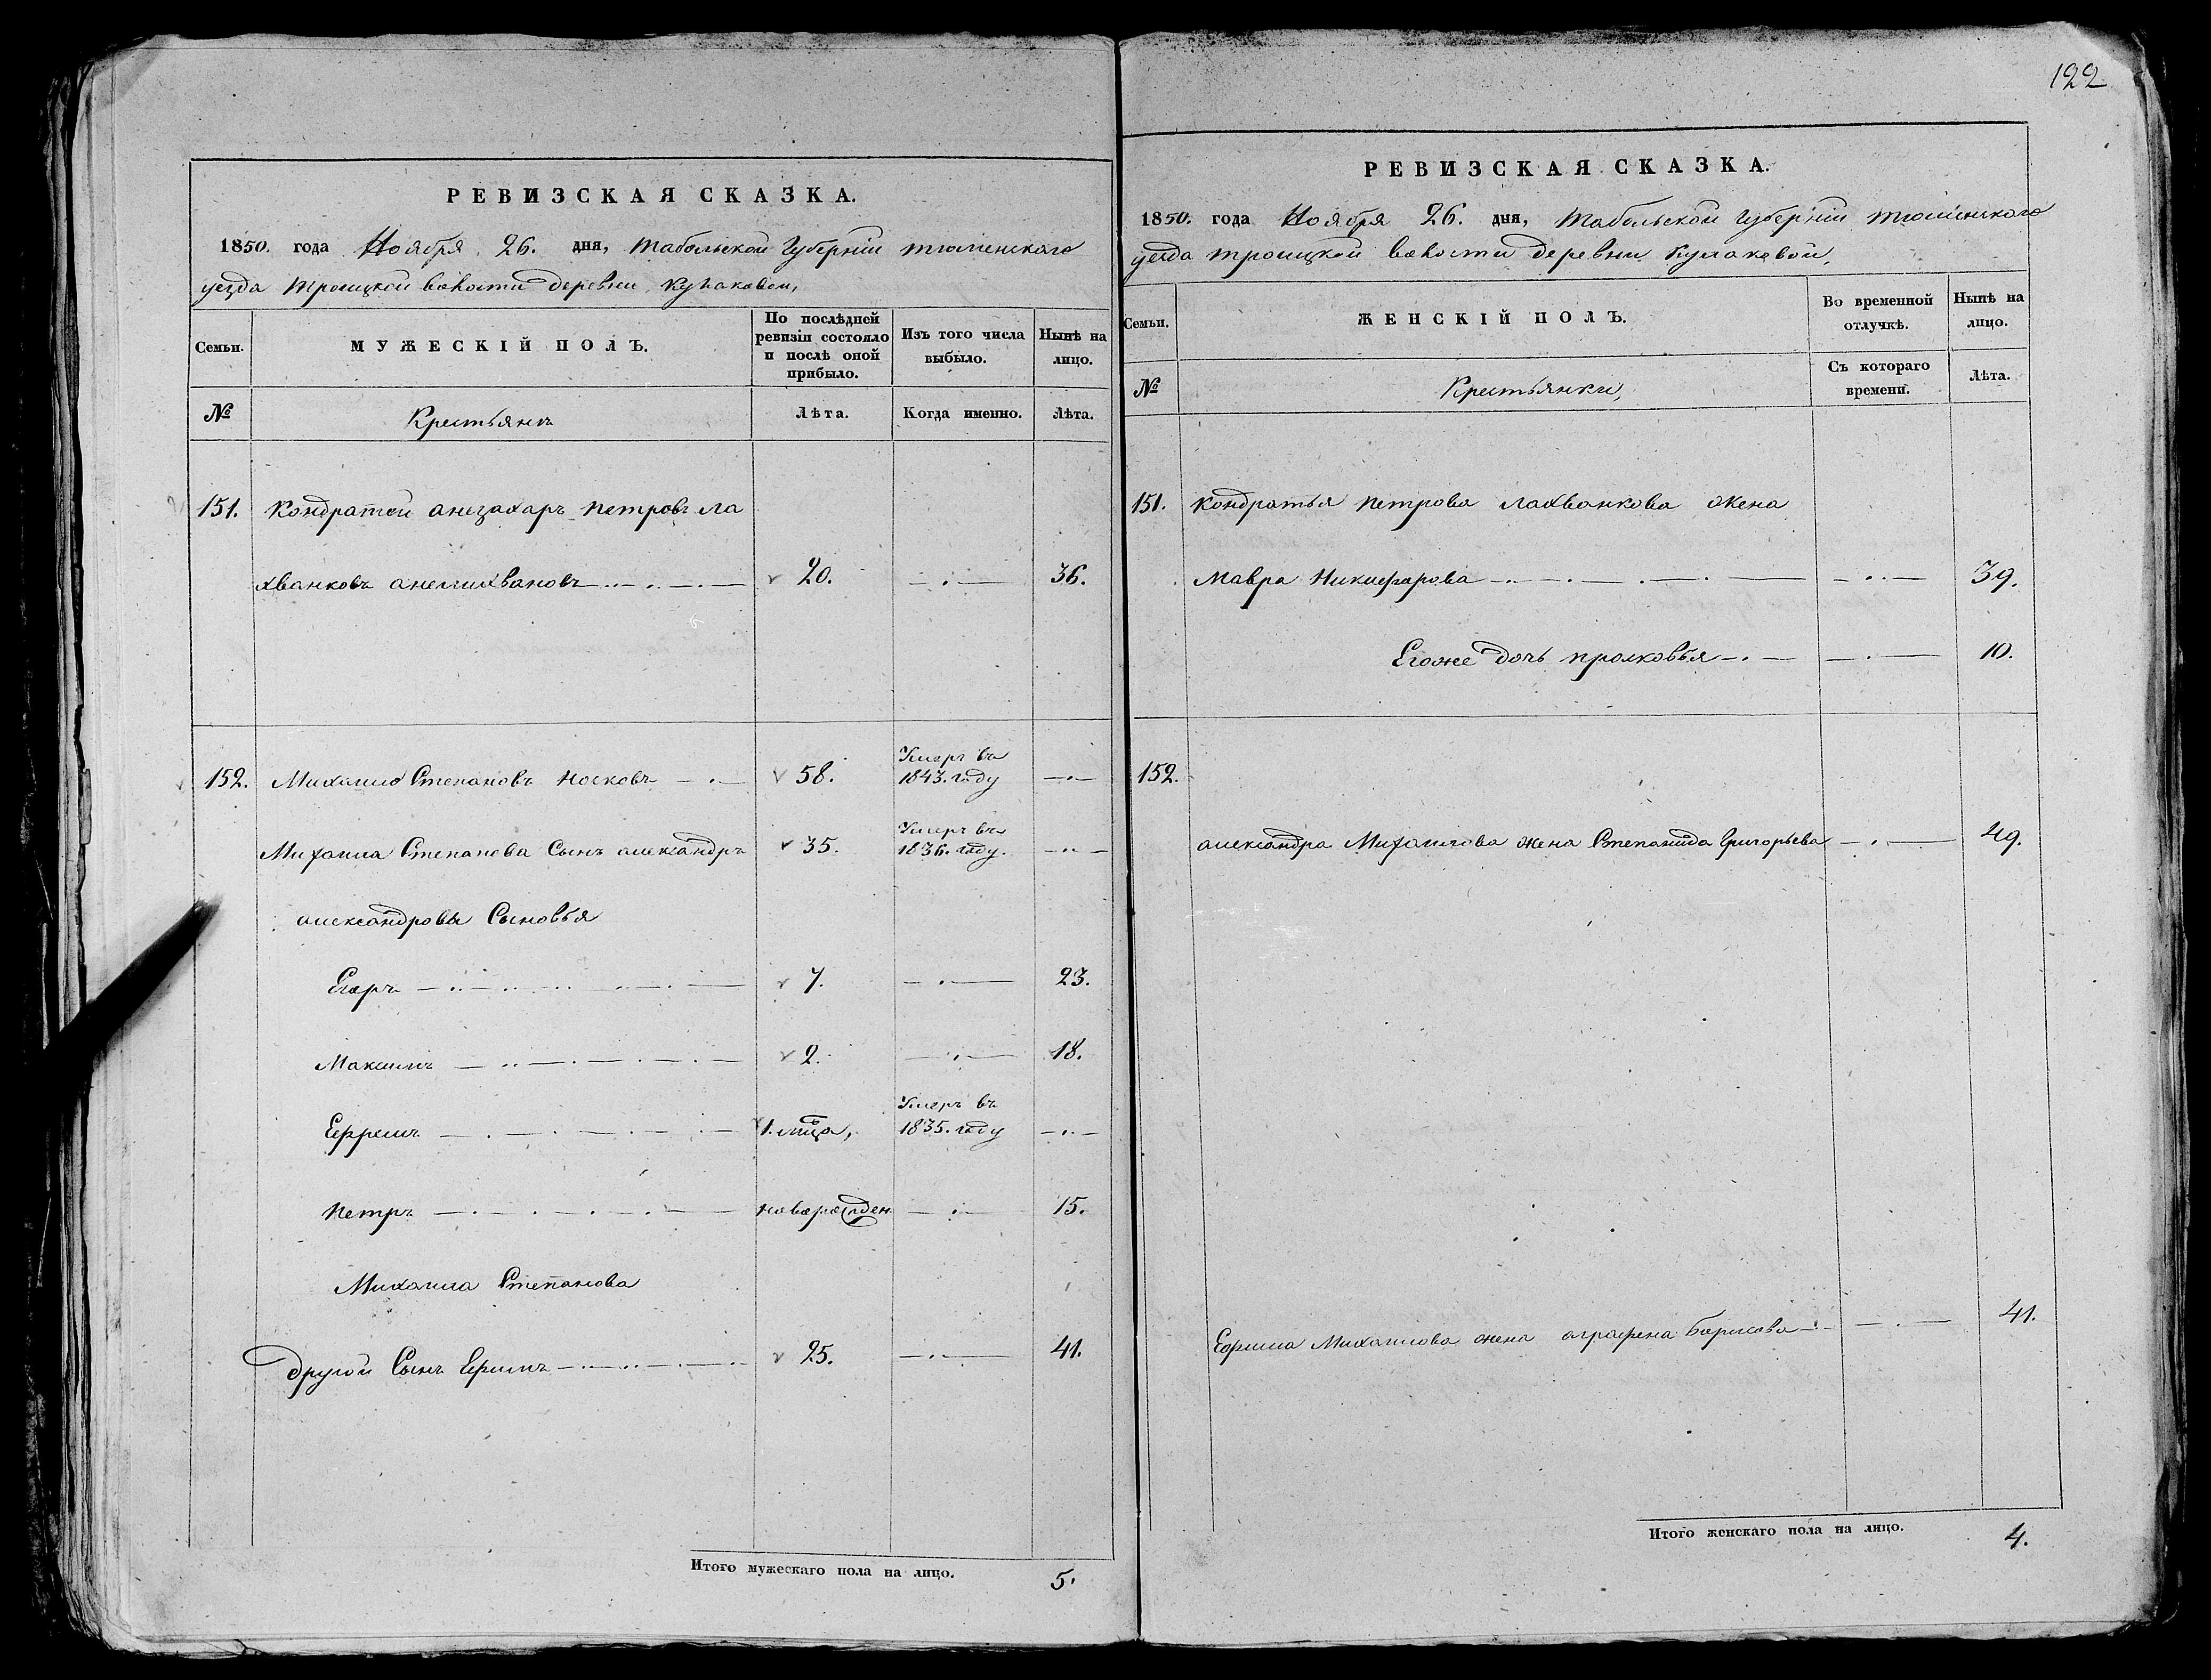 122
РЕВИЗСКАЯ СКАЗКА.
1850. года Ноября 26. дня, Табольской Губерніи тюменскаго
уезда троицкой волости деревни Кулаковой,
Семьи. МУЖЕСКІЙ ПОЛЪ. По послѣдней ревизіи состояло и послѣ оной прибыло. Изъ того числа выбыло. Нынѣ на лицо.
№ Крестьянъ Лѣта. Когда именно. Лѣта.
151. Кондратей анезахаръ петровъ ла
хванковъ анелихвановъ 20. 36.
152. Михаило Степановъ Носковъ 58. Умеръ въ 1843. году
Михаила Степанова Сынъ александръ 35. Умеръ въ 1836. году.
александровы Сыновья
Егоръ 7. 23.
Максимъ 2. 18.
Ефремъ 1. мца, Умеръ въ 1835. году
Петръ новорожден 15.
Михаила Степанова
другой Сынъ Ефимъ 25. 41.
Итого мужескаго пола на лицо. 5.
РЕВИЗСКАЯ СКАЗКА.
1850. года Ноября 26. дня, Табольской Губерніи тюменскаго
уезда троицкой волости деревни Кулаковой,
Семьи. ЖЕНСКІЙ ПОЛЪ. Во временной отлучкѣ. Нынѣ на лицо.
№ Крестьянки, Съ котораго времени. Лѣта.
151. Кондратья петрова лахванкова жена
мавра Никифарова 39.
Егоже дочь прасковья 10.
152.
александра Михаилова жена Степанида Григорьева 49.
Ефима Михаилова жена аграфена борисова 41.
Итого женскаго пола на лицо. 4.